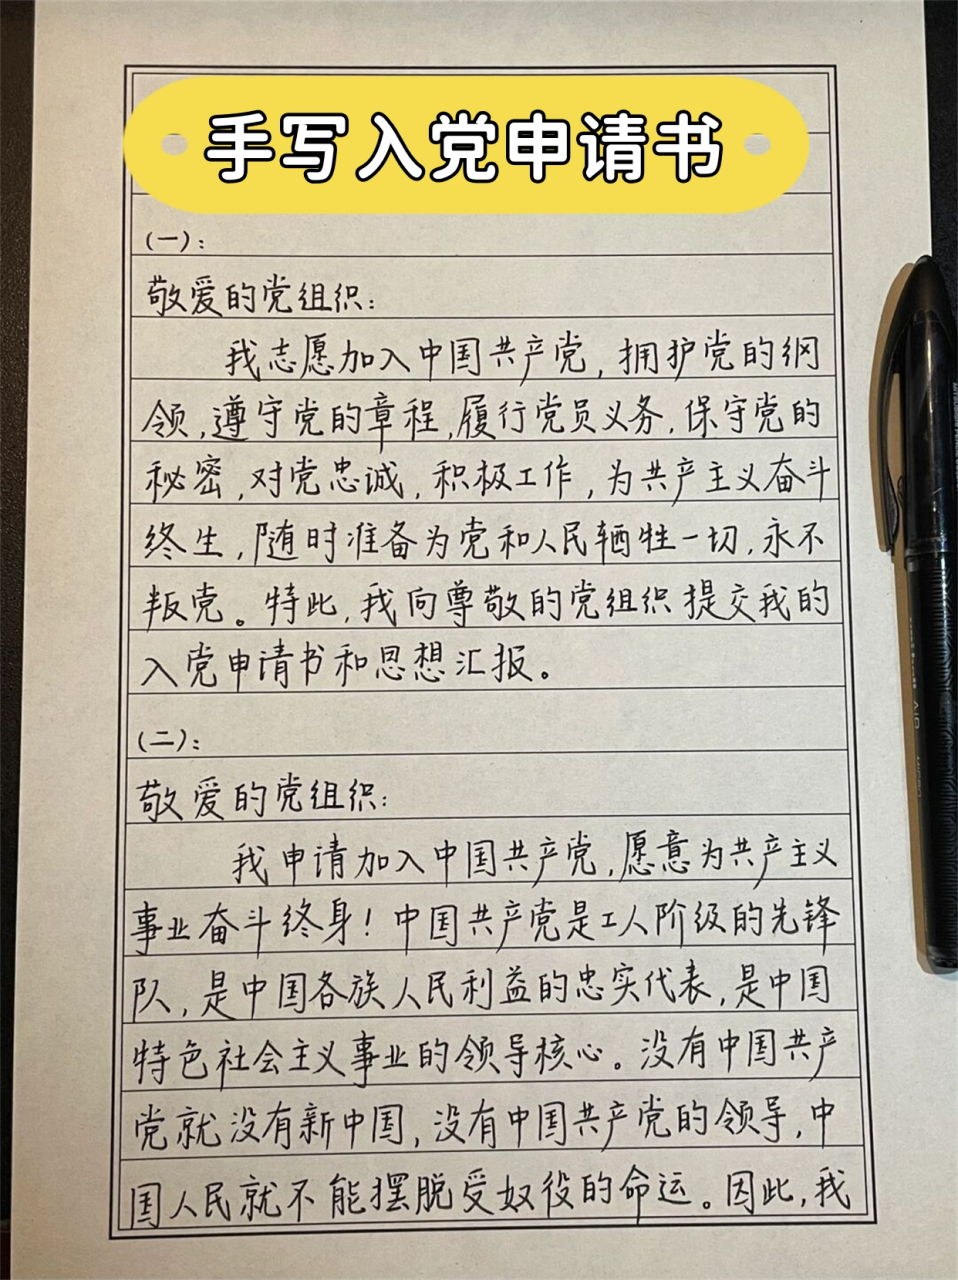 手写入党申请书
(一):
敬爱的党组织:
我志愿加入中国共产党,拥护党的纲
领,遵守党的章程,履行党员义务,保守党的
秘密,对党忠诚,积极工作,为共产主义奋斗
终生,随时准备为党和人民牺牲一切,永不
叛党。特此,我向尊敬的党组织提交我的
入党申请书和思想汇报。
(二):
敬爱的党组织:
我申请加入中国共产党,愿意为共产主义
事业奋斗终身!中国共产党是工人阶级的先锋
队,是中国各族人民利益的忠实代表,是中国
特色社会主义事业的领导核心。没有中国共产
党就没有新中国,没有中国共产党的领导,中
国人民就不能摆脱受奴役的命运。因此,我